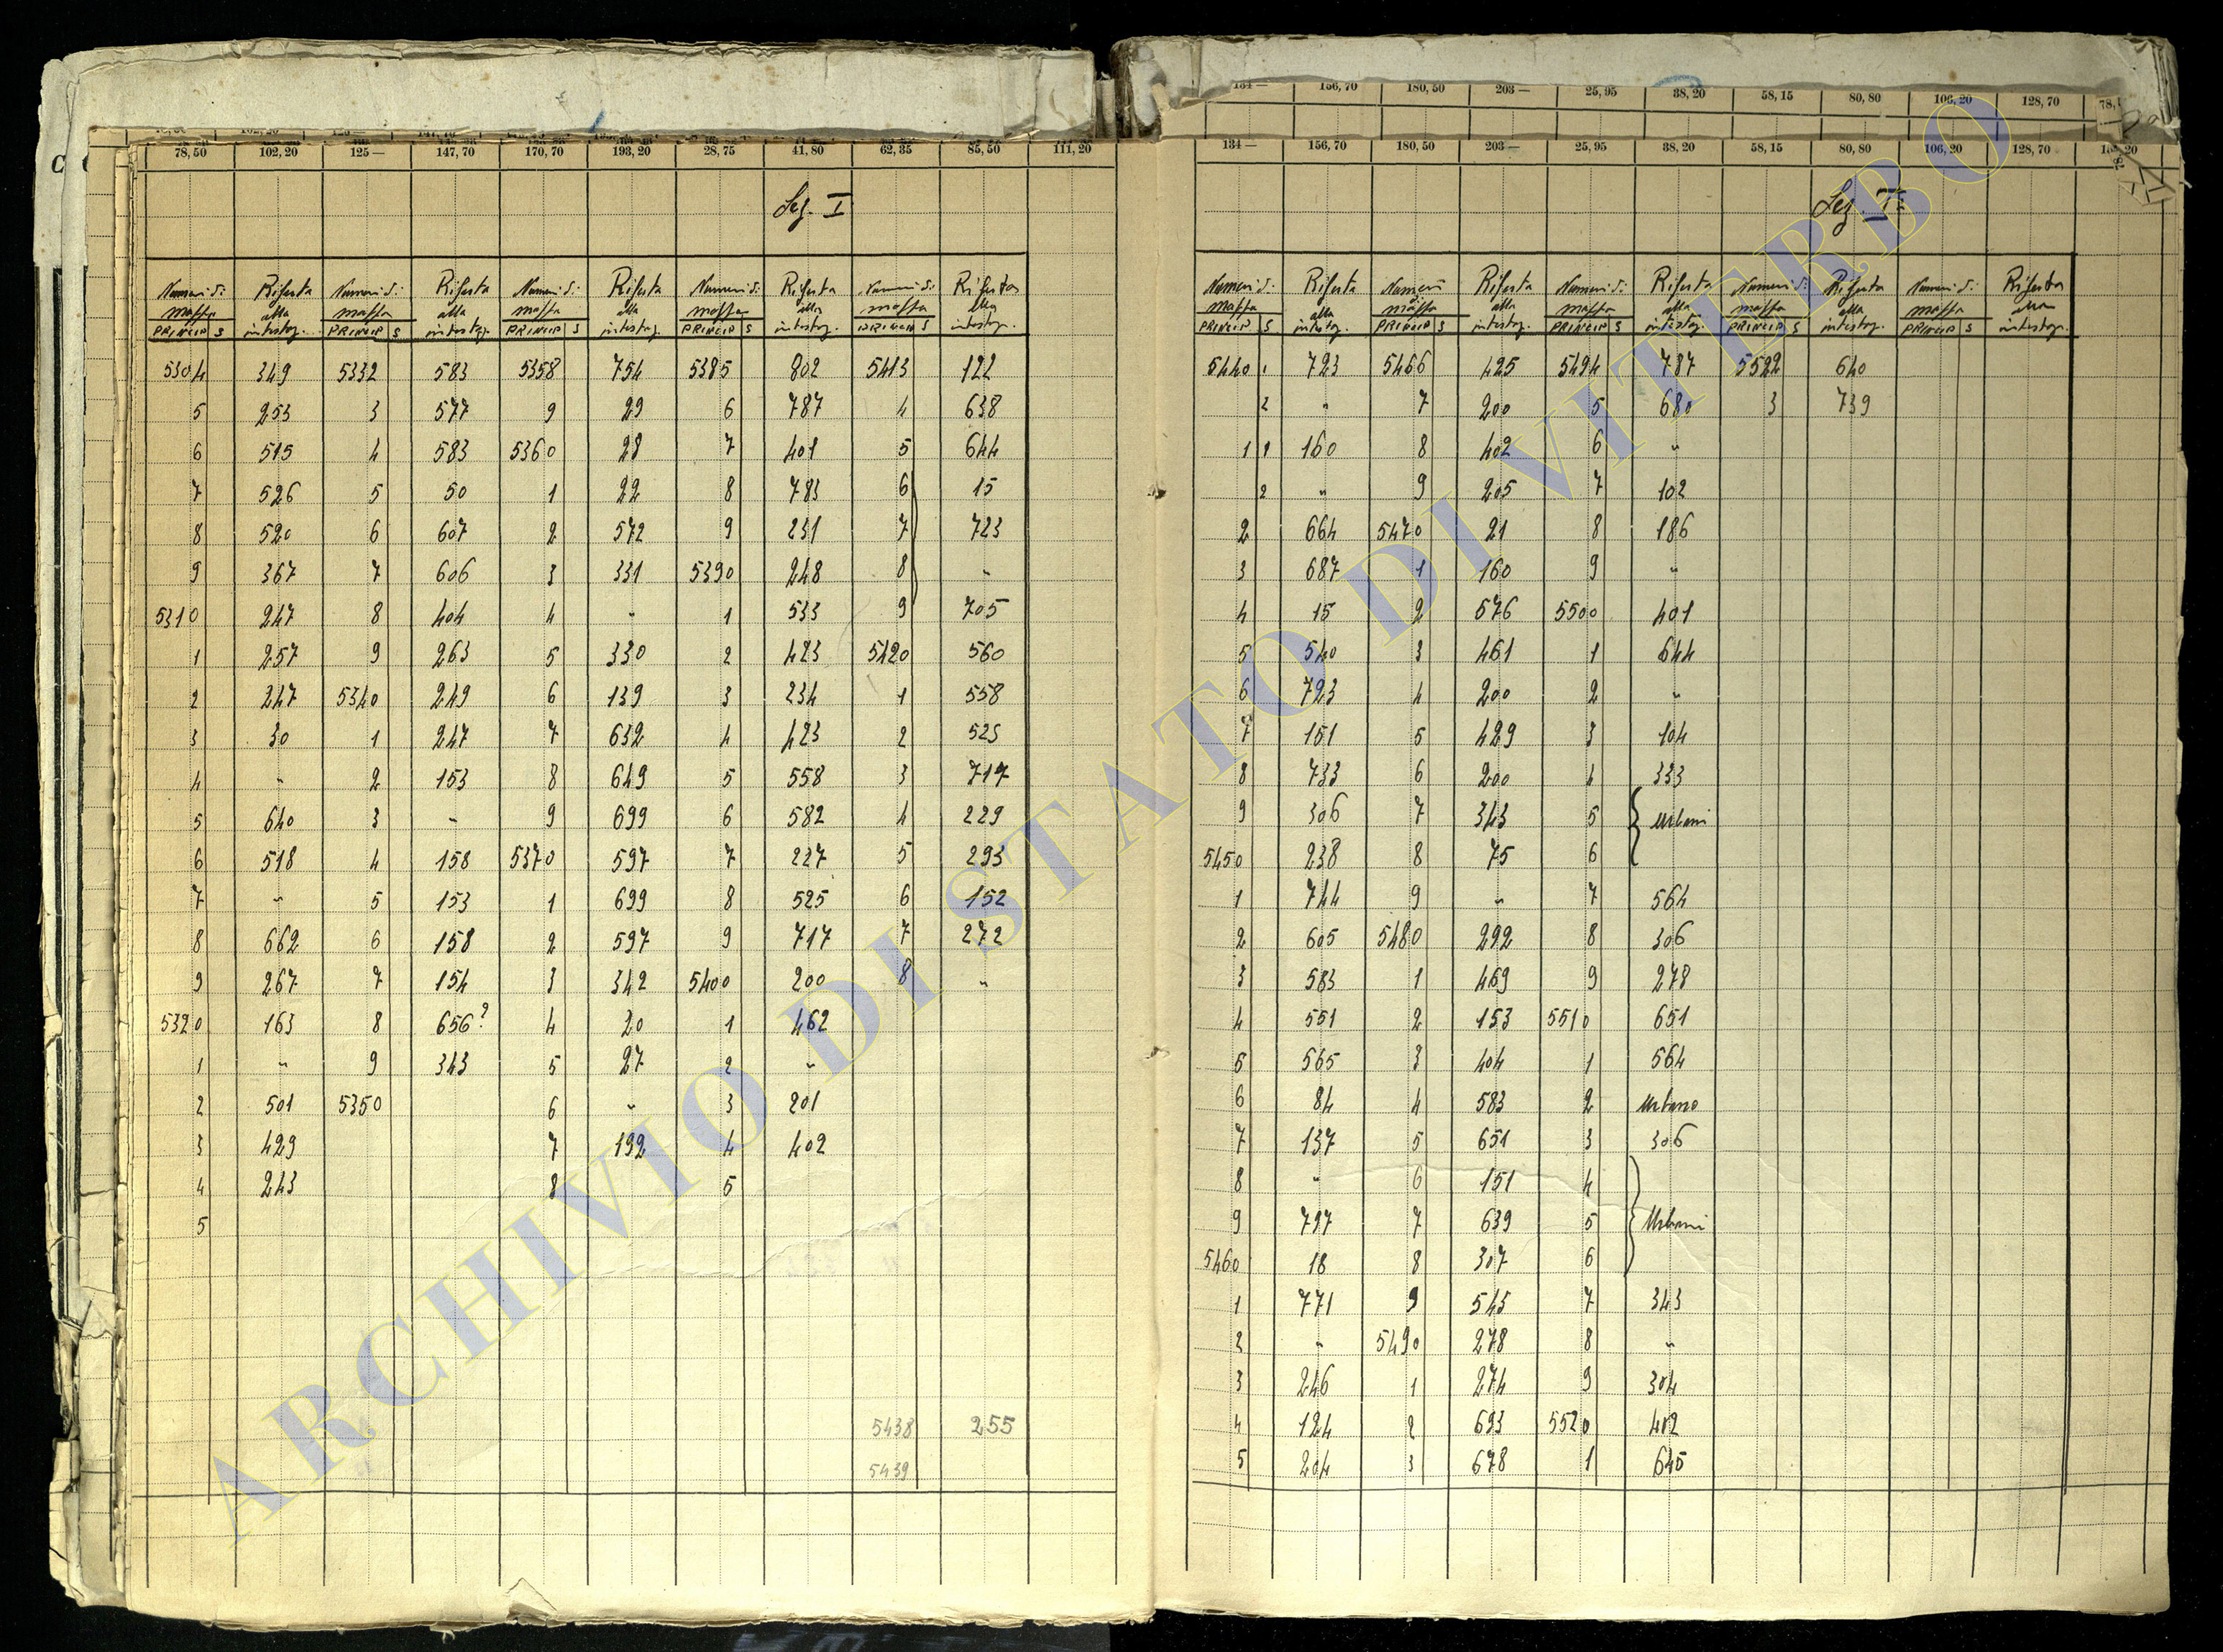 134 — 156, 70 180, 50 203 — 25, 95 38, 20 58, 15 80, 80 106, 20 128, 70
78, 50 102, 20 125 — 147, 70 170, 70 193, 20 28, 75 41, 80 62, 35 85, 50 111, 20
Sez. I
Numeri di mappa Riferta alla intestaz. Numeri di mappa Riferta alla intestaz. Numeri di mappa Riferta alla intestaz. Numeri di mappa Riferta alla intestaz. Numeri di mappa Riferta alla intestaz.
PRINCIP S PRINCIP S PRINCIP S PRINCIP S PRINCIP S
5304 349 5332 583 5358 754 5385 802 5413 122
5 253 3 577 9 29 6 787 4 638
6 515 4 583 5360 28 7 401 5 644
7 526 5 50 1 22 8 783 6 15
8 520 6 607 2 572 9 231 7 723
9 367 7 606 3 331 5390 248 8 "
5310 247 8 404 4 " 1 533 9 705
1 257 9 263 5 330 2 423 5420 560
2 247 5340 249 6 139 3 234 1 558
3 30 1 247 7 632 4 423 2 525
4 " 2 153 8 649 5 558 3 717
5 640 3 " 9 699 6 582 4 229
6 518 4 158 5370 597 7 227 5 293
7 " 5 153 1 699 8 525 6 152
8 662 6 158 2 597 9 717 7 272
9 267 7 154 3 342 5400 200 8 "
5320 163 8 656? 4 20 1 462
1 " 9 343 5 27 2 "
2 501 5350 6 " 3 201
3 429 7 192 4 402
4 243 8 5
5
5438 255
5439
134 — 156, 70 180, 50 203 — 25, 95 38, 20 58, 15 80, 80 106, 20 128, 70
Sez. I
Numeri di mappa Riferta alla intestaz. Numeri di mappa Riferta alla intestaz. Numeri di mappa Riferta alla intestaz. Numeri di mappa Riferta alla intestaz. Numeri di mappa Riferta alla intestaz.
PRINCIP S PRINCIP S PRINCIP S PRINCIP S PRINCIP S
5440 1 723 5466 425 5494 787 5522 640
2 " 7 200 5 680 3 739
1 1 160 8 402 6 "
2 " 9 205 7 102
2 664 5470 21 8 186
3 687 1 160 9 "
4 15 2 576 5500 401
5 540 3 461 1 644
6 723 4 200 2 "
7 151 5 429 3 104
8 733 6 200 4 333
9 306 7 343 5 urbani
5450 238 8 75 6
1 744 9 " 7 564
2 605 5480 292 8 306
3 583 1 469 9 278
4 551 2 153 5510 651
5 565 3 404 1 564
6 84 4 583 2 urbano
7 137 5 651 3 306
8 " 6 151 4
9 797 7 639 5 Urbani
5460 18 8 307 6
1 771 9 545 7 343
2 " 5490 278 8 "
3 246 1 274 9 304
4 124 2 693 5520 402
5 204 3 678 1 645
ARCHIVIO DI STATO DI VITERBO